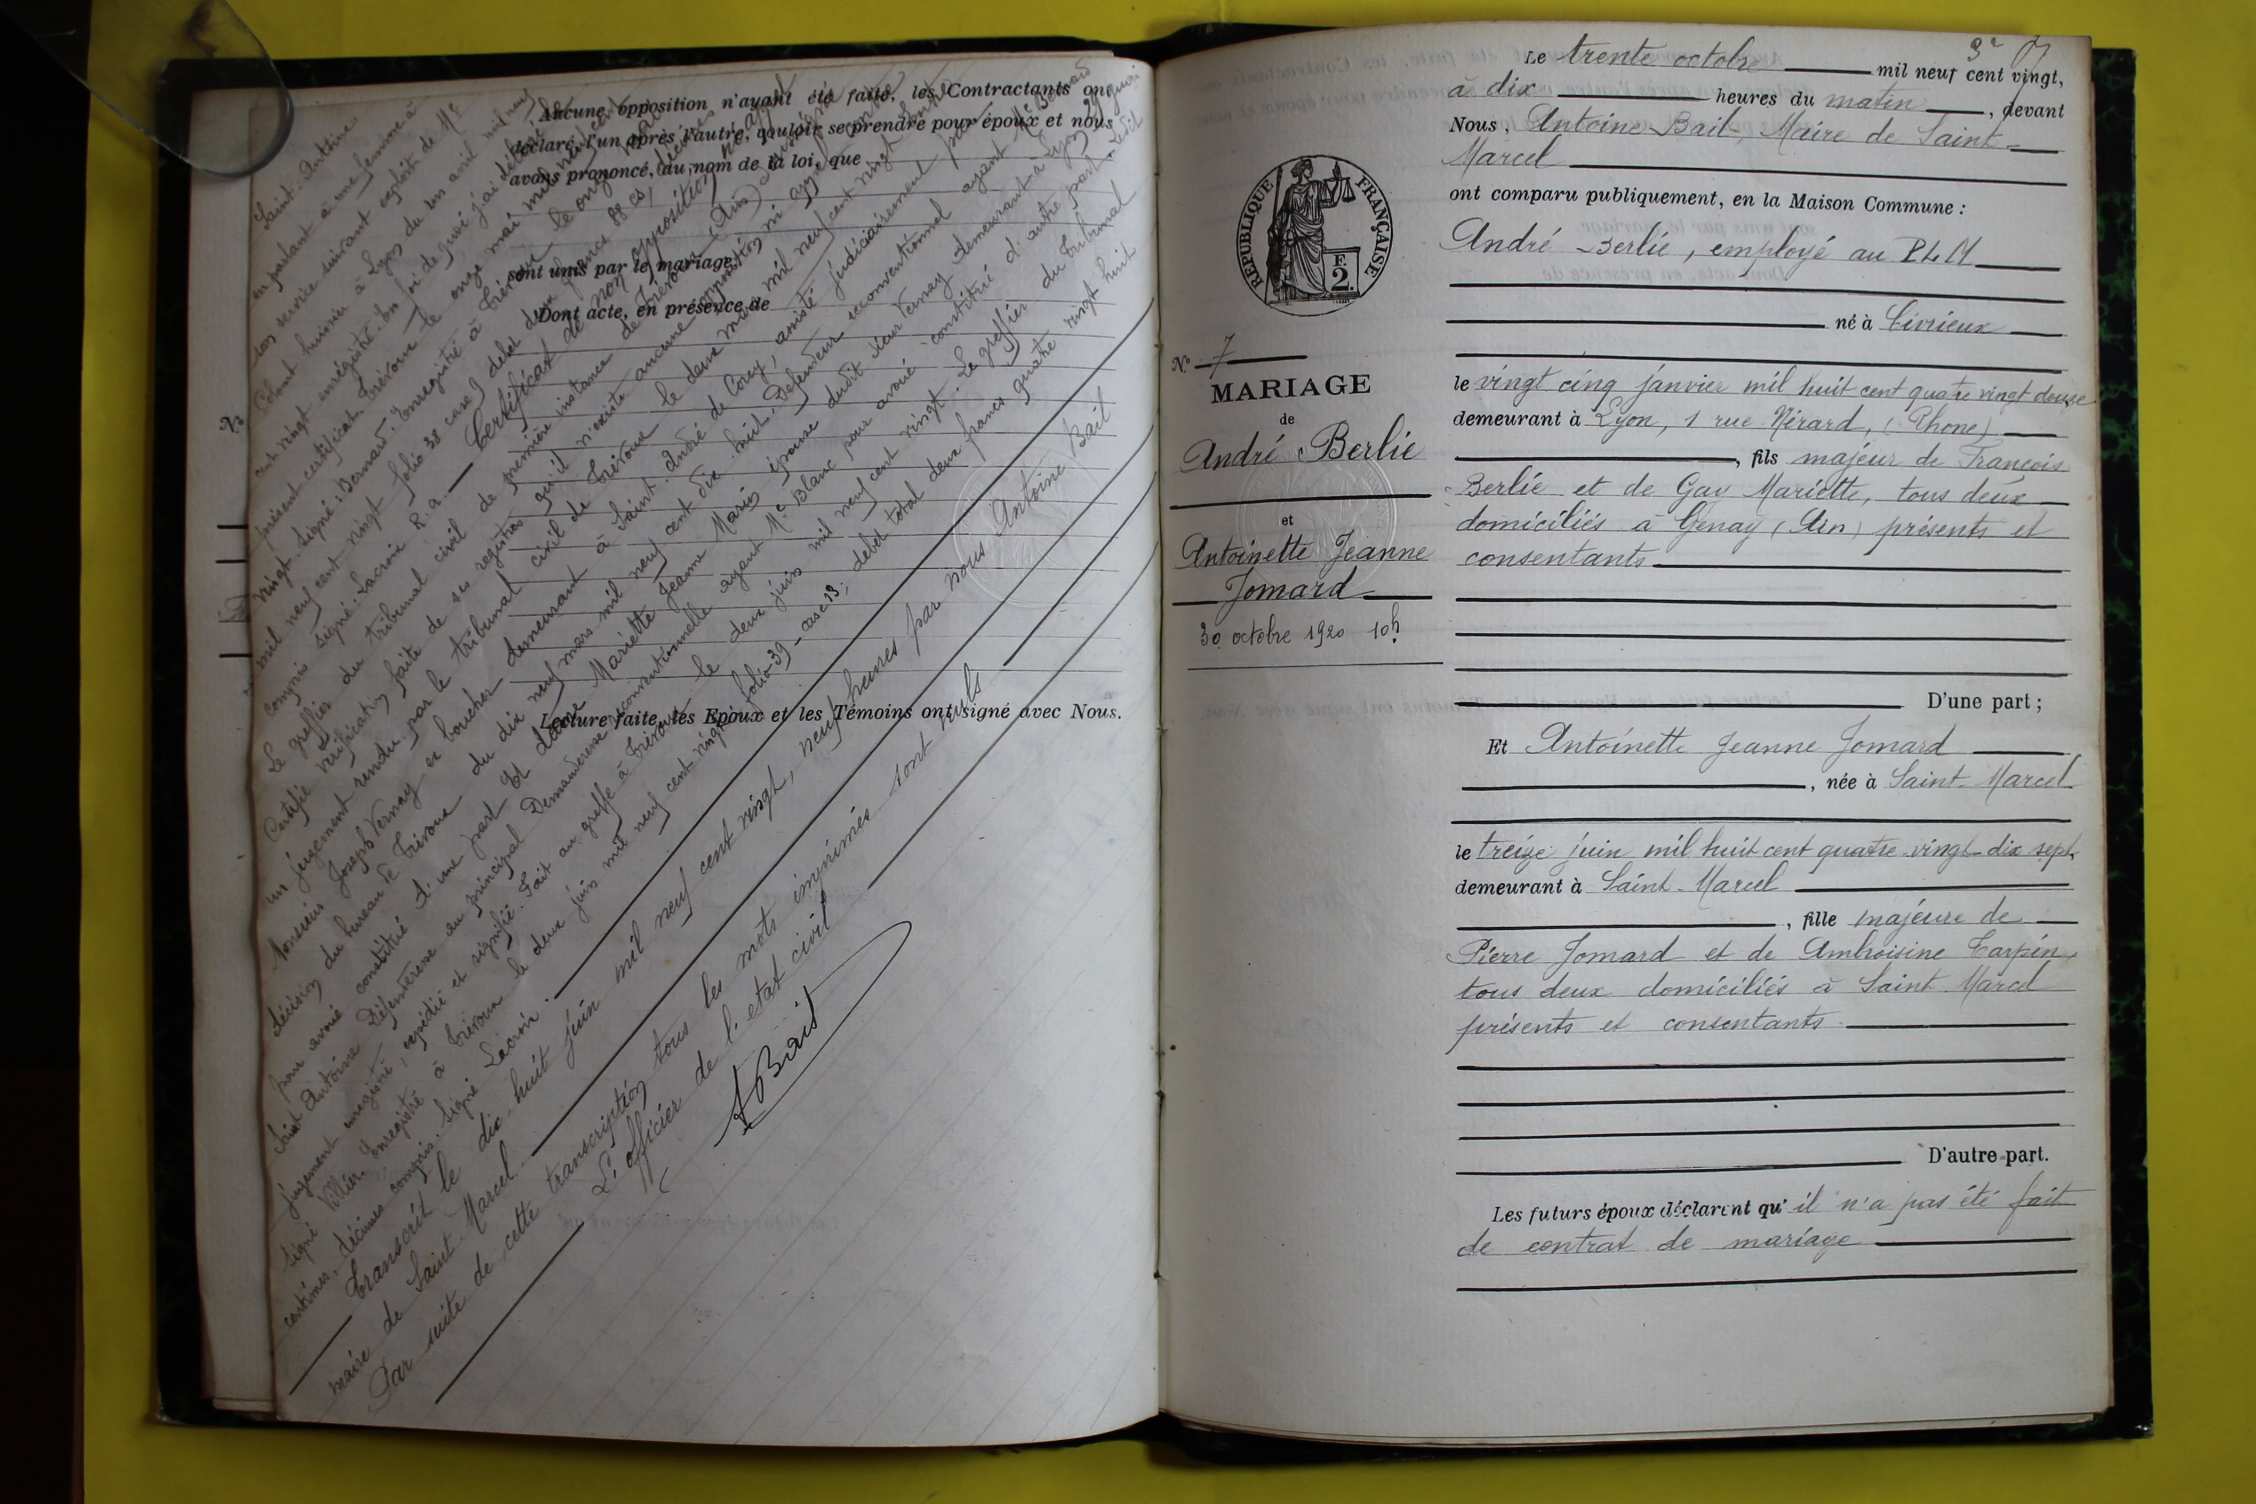 Aucune opposition n'ayant été faite, les Contractants ont
déclaré l'un après l'autre, vouloir se prendre pour époux et nous
avons prononcé, au nom de la loi, que
sont unis par le mariage.
Dont acte, en présence de
Lecture faite, les Epoux et les Témoins ont signé avec Nous.
No
Saint-Antoine
en parlant à une femme à
son service suivant exploit de Me
présent certificat. Trévoux le onze mai mil neuf cent
vingt. signé: Bernard. Enregistré à Trévoux le onze mai
mil neuf cent vingt folio 38 case
compris signé: Lacroix R. a. — Certificat de non opposition ni appel
Le greffier du tribunal civil de première instance de Trévoux (Ain) soussigné
Certifie vérification faite de ses registres qu'il n'existe aucune opposition ni appel contre
un jugement rendu par le tribunal civil de Trévoux le deux mars mil neuf cent vingt
Monsieur Joseph Vernay ex boucher demeurant à Saint-André de Corcy, assisté judiciairement par
décision du bureau de Trévoux du dix neuf mars mil neuf cent dix huit, Défendeur reconventionnel ayant Me Bernard
pour avoué constitué d'une part Et dame Mariette Jeanne Marin épouse dudit sieur Vernay demeurant à Lyon
Saint Antoine Défenderesse au principal Demanderesse reconventionnelle ayant Me Blanc pour avoué constitué d'autre part - Ledit
jugement enregistré, expédié et signifié. Fait au greffe à Trévoux le deux juin mil neuf cent vingt. Le greffier du tribunal
signé Enregistré à Trévoux le deux juin mil neuf cent vingt folio 39 - case 13; debet total deux francs quatre vingt huit
centimes, décimes compris. Signé Lacroix.
Transcrit le dix huit juin mil neuf cent vingt, neuf heures par nous Antoine Bail
maire de Saint Marcel
Par suite de cette transcription tous les mots imprimés sont nuls
L'officier de l'état civil
A Bail
Le trente octobre mil neuf cent vingt,
à dix heures du matin, devant
Nous, Antoine Bail, Maire de Saint-
Marcel
ont comparu publiquement, en la Maison Commune :
André Berlie, employé au P L M
né à Civrieux
le vingt cinq janvier mil huit cent quatre vingt douze
demeurant à Lyon, 1 rue Nérard, (Rhone)
, fils majeur de François
Berlie et de Gay Mariette, tous deux
domiciliés à Genay (Ain) présents et
consentants
D'une part ;
Et Antoinette Jeanne Jomard
, née à Saint-Marcel
le treize juin mil huit cent quatre-vingt-dix sept
demeurant à Saint-Marcel
, fille majeure de
Pierre Jomard et de Ambroisine Carpin,
tous deux domiciliés à Saint-Marcel
présents et consentants
D'autre part.
Les futurs époux déclarent qu'il n'a pas été fait
de contrat de mariage
RÉPUBLIQUE FRANÇAISE
F.
2.
No 7
MARIAGE
de
André Berlie
et
Antoinette Jeanne
Jomard
30 octobre 1920 10h